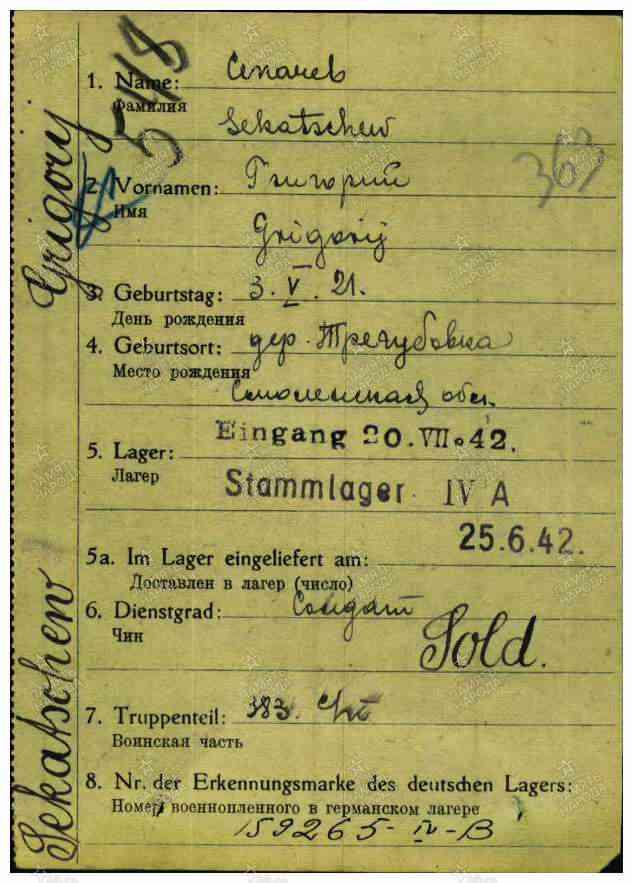 548
363
1. Name: Секачев
Фамилия
Sekatschew
2. Vornamen: Григорий
Имя
Grigorij
3. Geburtstag: 3. V. 21.
День рождения
4. Geburtsort: дер. Трегубовка
Место рождения
Смоленская обл.
Eingang 20.VII.42.
5. Lager:
Лагер
Stammlager IV A
25.6.42.
5a. Im Lager eingeliefert am:
Доставлен в лагер (число)
6. Dienstgrad: Солдат
Чин
Sold.
7. Truppenteil: 383.
Воинская часть
8. Nr. der Erkennungsmarke des deutschen Lagers:
Номер военнопленного в германском лагере
159265- IV-B
Sekatschew Grigory